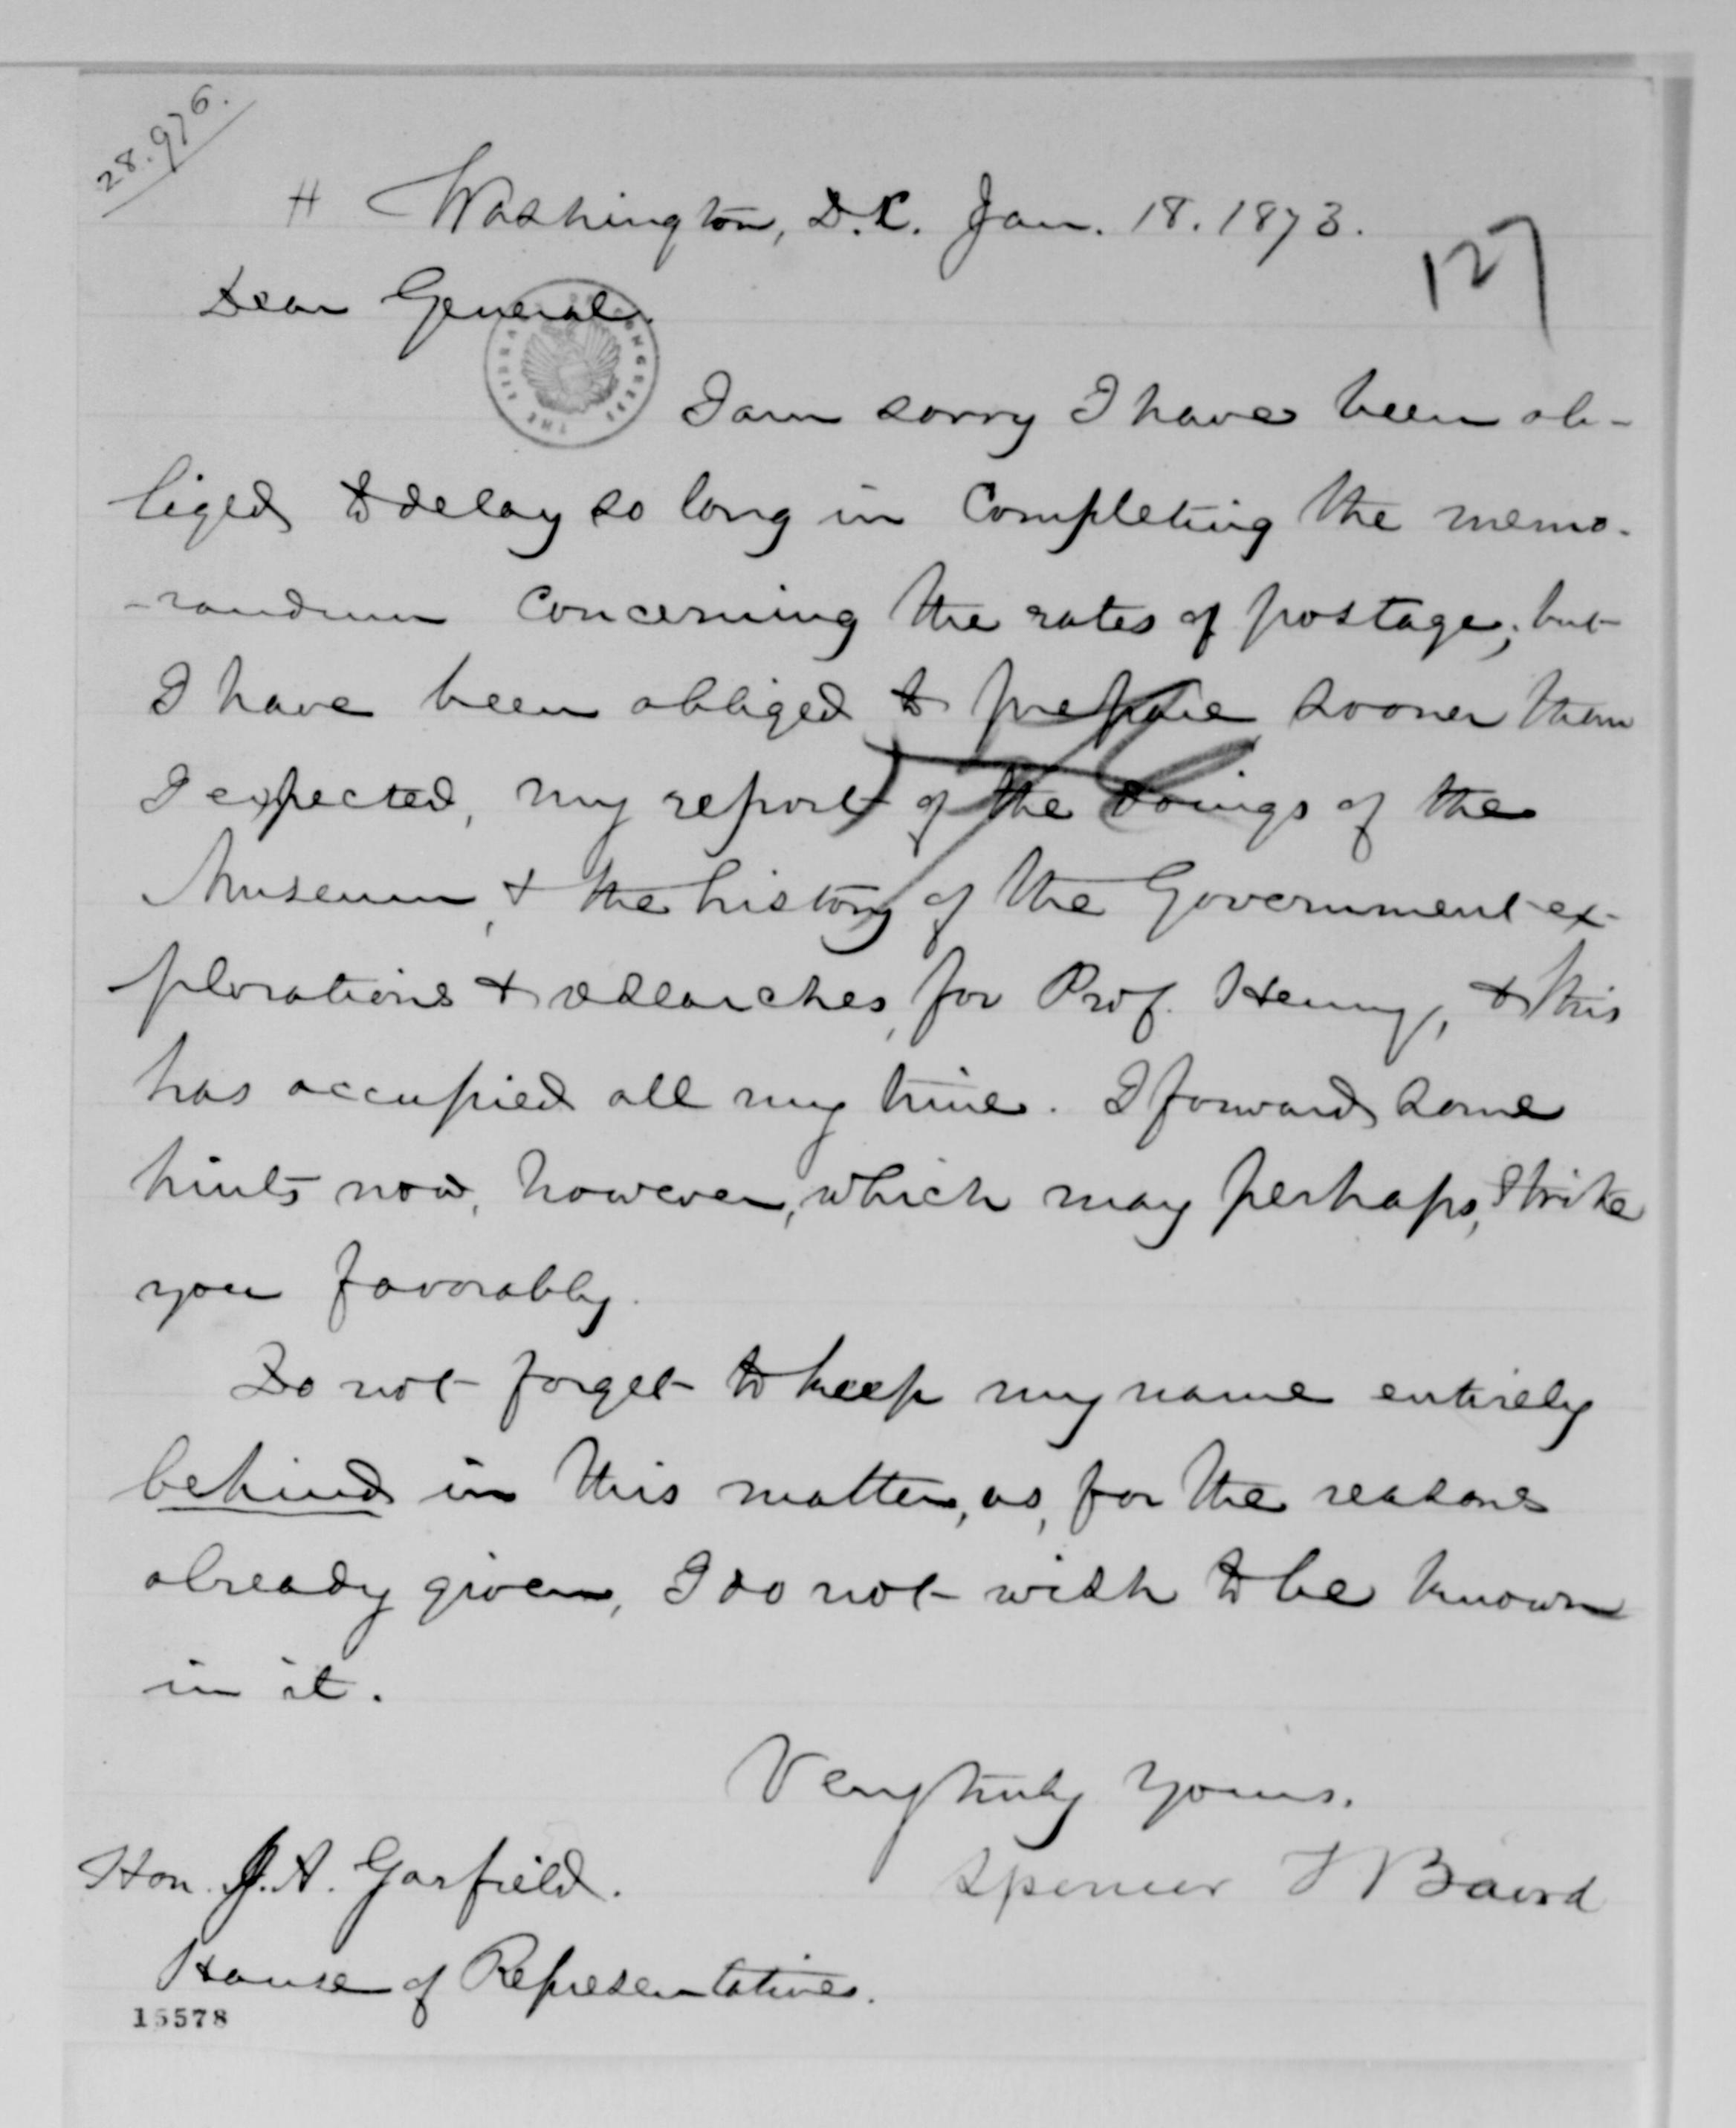 28.976.
H Washington, D.C. Jan. 18. 1873.
127
Dear General.
THE LIBRARY OF CONGRESS
I am sorry I have been ob-
liged to delay so long in completing the memo-
-randum concerning the rates of postage; but
I have been obliged to prepare sooner than
I expected, my report of the doings of the
Museum, & the history of the Government ex-
plorations & researches, for Prof. Henry, & this
has occupied all my time. I forward some
hints now, however, which may perhaps, strike
you favorably.
Do not forget to keep my name entirely
behind in this matter, as, for the reasons
already given, I do not wish to be known
in it.
Very truly yours.
Spencer F Baird
Hon. J. A. Garfield.
House of Representatives.
15578